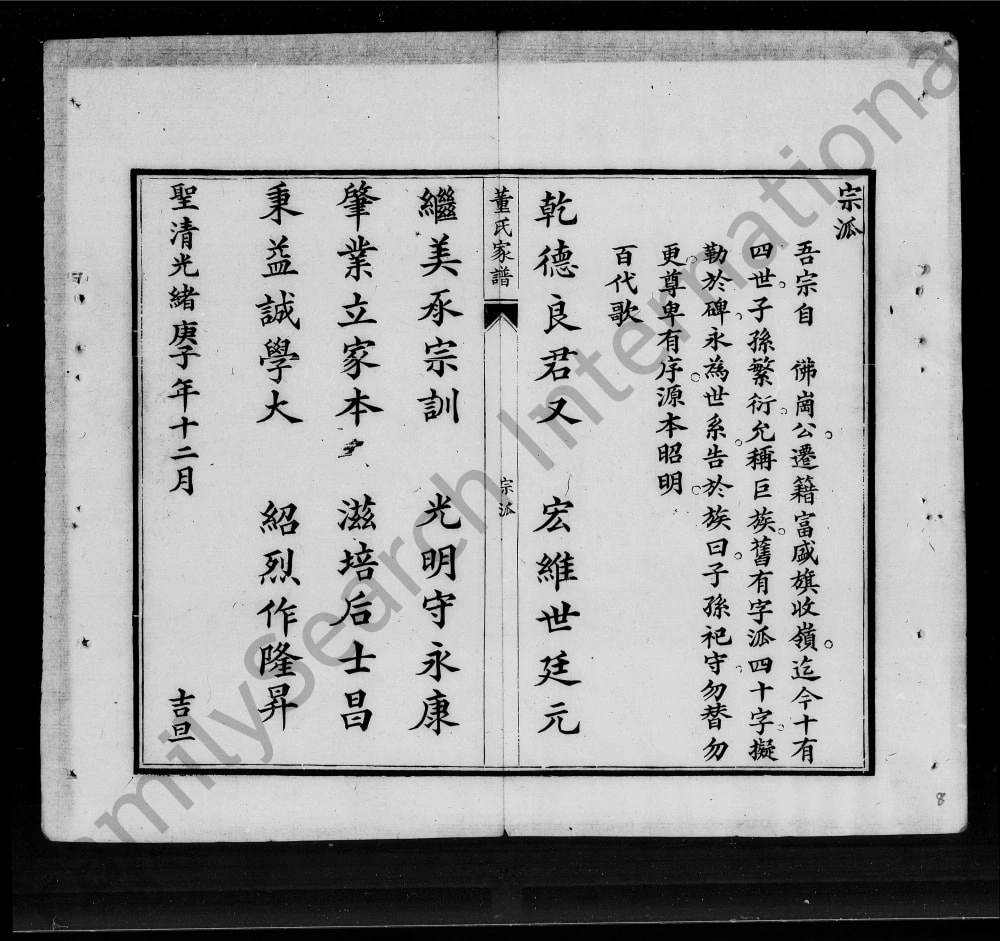 宗派
吾宗自　佛崗公遷籍富盛旗收嶺迄今十有
四世子孫繁衍允稱巨族舊有字派四十字擬
勒於碑永為世系告於族曰子孫祀守勿替勿
更尊卑有序源本昭明
百代歌
乾德良君又　宏維世廷元
董氏家譜
宗派
繼美承宗訓　光明守永康
肇業立家本　滋培后士昌
秉益誠學大　紹烈作隆昇
聖清光緒庚子年十二月　吉旦
8
FamilySearch International